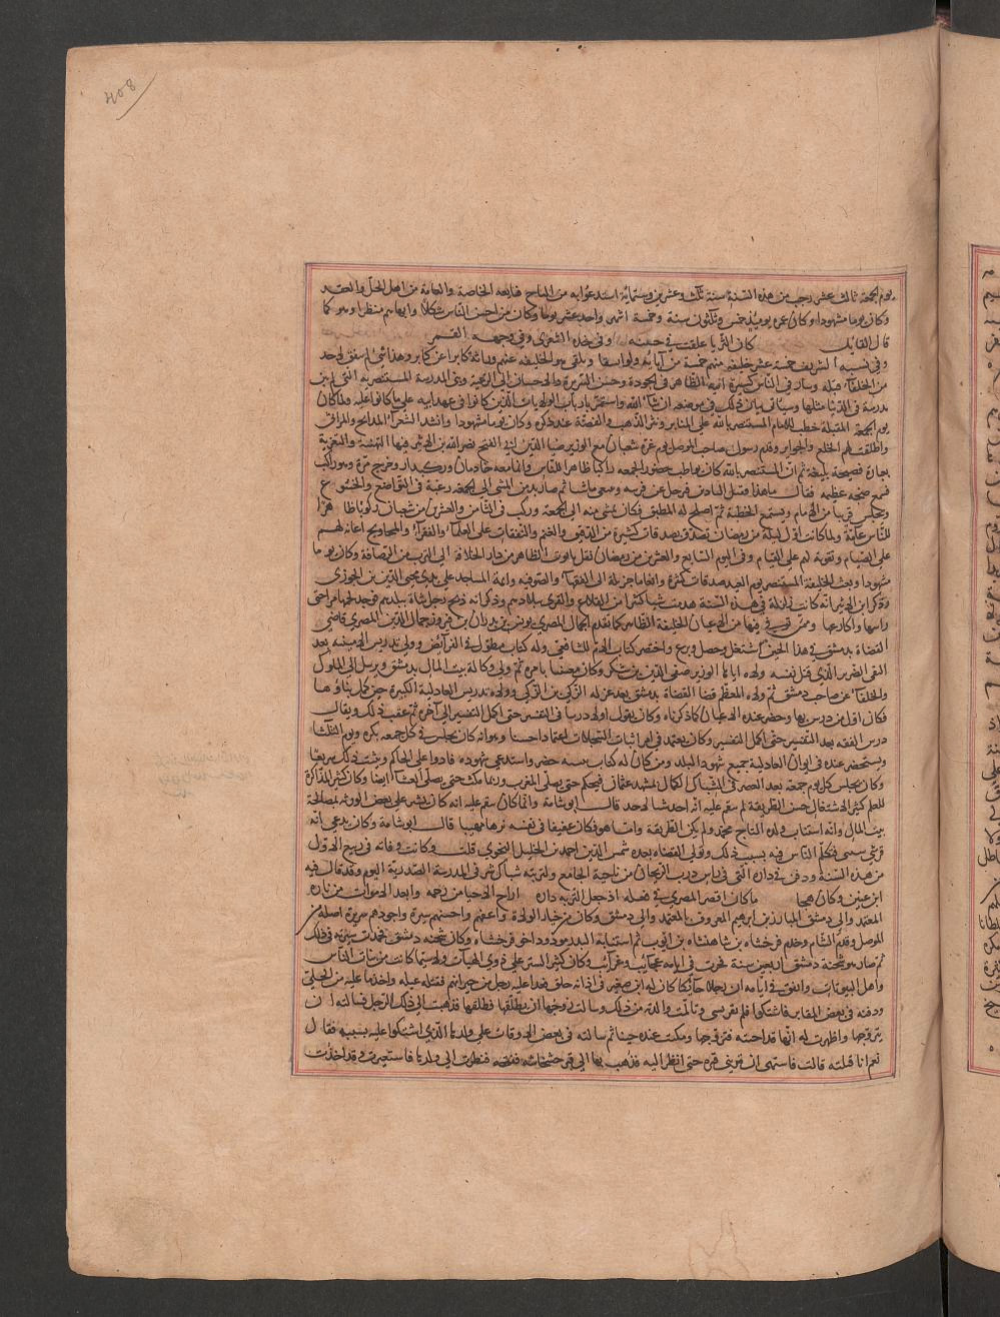 408
يوم الجمعة ثالث عشر رجب من هذه السنة سنة ثلث وعشرين وستمائة استدعوا به من التاج فبايعه الخاصة والعامة من اهل الحل والعقد
وكان يوما مشهودا وكان عمره يومئذ خمس وثلثون سنة وخمسة اشهر واحد عشر يوما وكان من احسن الناس شكلا وابهاهم منظرا وهو كما
قال القايل كان الثريا علقت في جبينه وفي خده الشعرى وفي وجهه القمر
وفي نسبه الشريف خمسة عشر خليفة منهم خمسة من آبائه ولوا نسقا وتلقى هو الخلافة عنهم وراثة كابرا عن كابر وهذا شي لم يتفق لاحد
من الخلفاء قبله وسار في الناس كسيرة ابيه الظاهر في الجودة وحسن السيرة والاحسان الى الرعية وبنى المدرسة المستنصرية التي لم تبن
مدرسة في الدنيا مثلها وسيأتي بيان ذلك في موضعه ان شاء الله واستمر بارباب الولايات الذين كانوا في عهد ابيه على ما كانوا عليه ولما كان
يوم الجمعة المقبلة خطب للامام المستنصر بالله على المنابر ونثر الذهب والفضة عند ذكره وكان يوما مشهودا وانشد الشعراء المدايح والمراثي
واطلقت لهم الخلع والجوايز وقدم رسول من صاحب الموصل يوم غرة شعبان مع الوزير ضيا الدين ابي الفتح نصر الله بن الاثير فيها التهنئة والتعزية
بعبارة فصيحة بليغة ثم ان المستنصر بالله كان يواظب حضور الجمعه راكبا ظاهرا للناس وانما معه خادمان وركبدار وخرج مرة وهو راكب
فسمع ضجة عظيمة فقال ما هذا فقيل التاذين فترجل عن فرسه وسعى ماشيا ثم صار يدمن المشي الى الجمعة رغبة في التواضع والخشوع
ويجلس قريبا من الامام ويستمع الخطبة ثم اصلح له المطبق فكان يمشي منه الى الجمعة وركب في الثامن والعشرين من شعبان ركوبا ظاهرا
للناس عامة ولما كانت اول ليلة من رمضان تصدق بصدقات كثيرة من الدقيق والغنم والنفقات على العلماء والفقراء والمحاويج اعانة لهم
على الصيام وتقوية لهم على القيام وفي اليوم السابع والعشرين من رمضان نقل تابوت الظاهر من دار الخلافة الى الترب من الرصافة وكان يوما
مشهودا وبعث الخليفة المستنصر يوم العيد صدقات كثيرة وانعاما جزيلة الى الفقهاء والصوفيه وائمة المساجد على يدي محيي الدين بن الجوزي
وذكر ابن الاثير انه كانت زلزلة في هذه السنة هدمت شيا كثيرا من القلاع والقرى ببلادهم وذكر انه ذبح رجل شاة ببلدهم فوجد لحمها مرا حتى
راسها واكارعها وممن توفي فيها من الاعيان الخليفة الظاهر كما تقدم الجمال المصري يونس بن بدران بن فيروز جمال الدين المصري قاضي
القضاة بدمشق في هذا الحين اشتغل وحصل وبرع واختصر كتاب الام للشافعي وله كتاب مطول في الفرائض وولى تدريس الامينية بعد
التقى الضرير الذي قتل نفسه ولاه اياها الوزير صفي الدين بن شكر وكان معتنيا بامره ثم ولى وكالة بيت المال بدمشق وترسل الى الملوك
والخلفاء عن صاحب دمشق ثم ولاه المعظم قضا القضاة بدمشق بعد عزله الزكي بن الزكي وولاه تدريس العادلية الكبيرة حين كمل بناؤها
فكان اول من درس بها وحضر عنده الاعيان كما ذكرناه وكان يقول اولا درسا في التفسير حتى اكمل التفسير الى آخره ثم عقب ذلك ويقال
درس الفقه بعد التفسير حتى اكمل التفسير وكان يعتمد في امر اثبات السجلات اعتمادا حسنا وهو انه كان يجلس في كل جمعه بكره ويوم الثلثا
ويستحضر عنده في ايوان العادلية جميع شهود البلد ومن كان له كتاب يثبته حضر واستدعى شهوده فادوا على الحاكم ويثبت ذلك سريعا
وكان يجلس كل يوم جمعة بعد العصر في الشباك الكمالي بمشهد عثمان فيحكم حتى يصلى المغرب وربما مكث حتى يصلى العشاء ايضا وكان كثير المذاكرة
للعلم كثير الاشتغال حسن الطريقة لم ينقم عليه انه اخذ شيا لاحد قال ابو شامة وانما كان ينقم عليه انه كان يشير على بعض الورثة بمصالحة
بيت المال وانه استناب ولده التاج محمد ولم يكن بالطريقة واما هو فكان عفيفا في نفسه نزها مهيبا قال ابو شامة وكان يدعي انه
قرشي شيبي فتكلم الناس فيه بسبب ذلك وتولى القضاء بعده شمس الدين احمد بن الخليل الخويي قلت وكانت وفاته في ربيع الاول
من هذه السنة ودفن في داره التي في راس درب الريحان من ناحية الجامع ولتربته شباك شرقي المدرسة الصدرية اليوم وقد قال فيه
ابن عنين وكان هجا ما كان اقصر المصري في فعله اذ جعل التربة داره اراح الاحيا من رجمه وابعد الاموات من ناره
المعتمد والي دمشق المبارز بن ابرهيم المعروف بالمعتمد والي دمشق وكان من خيار الولاة واعفهم واحسنهم سيرة واجودهم سريرة اصله من
الموصل وقدم الشام وخدم فرخشاه بن شاهنشاه بن ايوب ثم استنابه البدر مودود اخو فرخشاه وكان شحنة دمشق فحمدت سيرته في ذلك
ثم صار هو شحنة دمشق اربعين سنة فجرت في ايامه عجائب وغرائب وكان كثير الستر على ذوي الهيآت ولا سيما من كانت من بنات الناس
واهل البيوتات واتفق في ايامه ان رجلا حائكا كان له ابن صغير في اذنه حلق فعدا عليه رجل من جيرانهم فقتله غيلة واخذ ما عليه من الحلي
ودفنه في بعض المقابر فاشتكوا فلم يقر بشي وتألمت والدته من ذلك وسالت زوجها ان يطلقها فطلقها فذهبت الى ذلك الرجل فسالته ان
يتزوجها واظهرت له انها قد احبته فتزوجها ومكثت عنده حينا ثم سالته في بعض الاوقات على ولدها الذي اشتكوا عليه بسببه فقال
نعم انا قتلته قالت فاشتهى ان تريني قبره حتى انظر اليه فذهب بها الى قبر خشخاشه ففتحه فنظرت الى ولدها فاستعبرت وقد اخذت